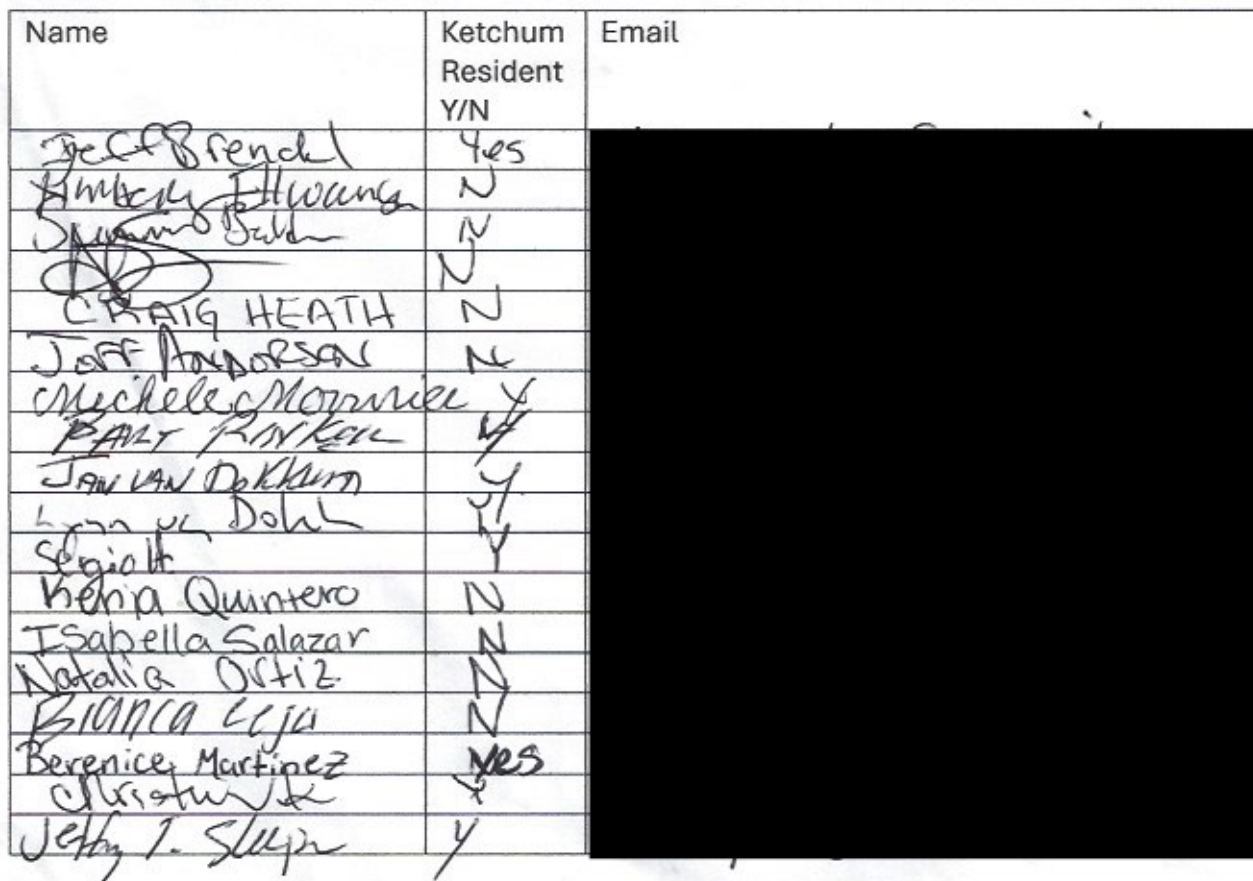 Name Ketchum Resident Y/N Email
Jeff Brendel Yes
Kimberly Ellwanger N
N
N
CRAIG HEATH N
JEFF ANDERSON N
Michele Y
BART Y
JAN VAN DOKKUM Y
Lynn Y
Sergio H. Y
Kenia Quintero N
Isabella Salazar N
Natalia Ortiz N
Bianca Ceja N
Berenice Martinez Yes
Y
T. Y